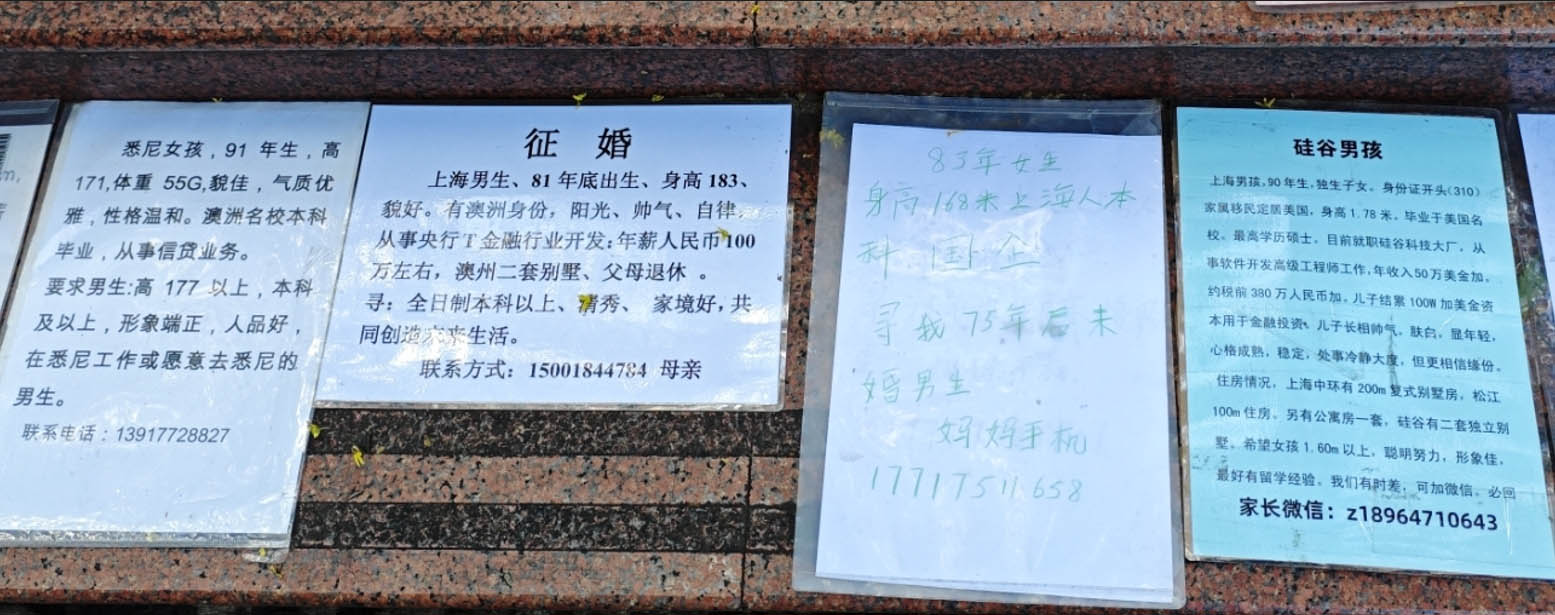 悉尼女孩，91 年生，高
171,体重 55G,貌佳，气质优
雅，性格温和。澳洲名校本科
毕业，从事信贷业务。
要求男生:高 177 以上，本科
及以上，形象端正，人品好，
在悉尼工作或愿意去悉尼的
男生。
联系电话：13917728827
征 婚
上海男生、81 年底出生、身高 183、
貌好。有澳洲身份，阳光、帅气、自律，
从事央行 T 金融行业开发：年薪人民币 100
万左右，澳州二套别墅、父母退休 。
寻：全日制本科以上、清秀、 家境好，共
同创造未来生活。
联系方式：15001844784 母亲
83年女生
身高168米上海人本
科 国企
寻找75年后未
婚男生
妈妈手机
17717511658
硅谷男孩
上海男孩，90 年生，独生子女。身份证开头（310）
家属移民定居美国，身高 1.78 米。毕业于美国名
校。最高学历硕士，目前就职硅谷科技大厂，从
事软件开发高级工程师工作，年收入 50 万美金加。
约税前 380 万人民币加。儿子结累 100W 加美金资
本用于金融投资。儿子长相帅气，肤白，显年轻，
心格成熟，稳定，处事冷静大度，但更相信缘份。
住房情况，上海中环有 200m 复式别墅房，松江
100m 住房。另有公寓房一套，硅谷有二套独立别
墅。希望女孩 1.60m 以上，聪明努力，形象佳，
最好有留学经验。我们有时差，可加微信。必回
家长微信：z18964710643